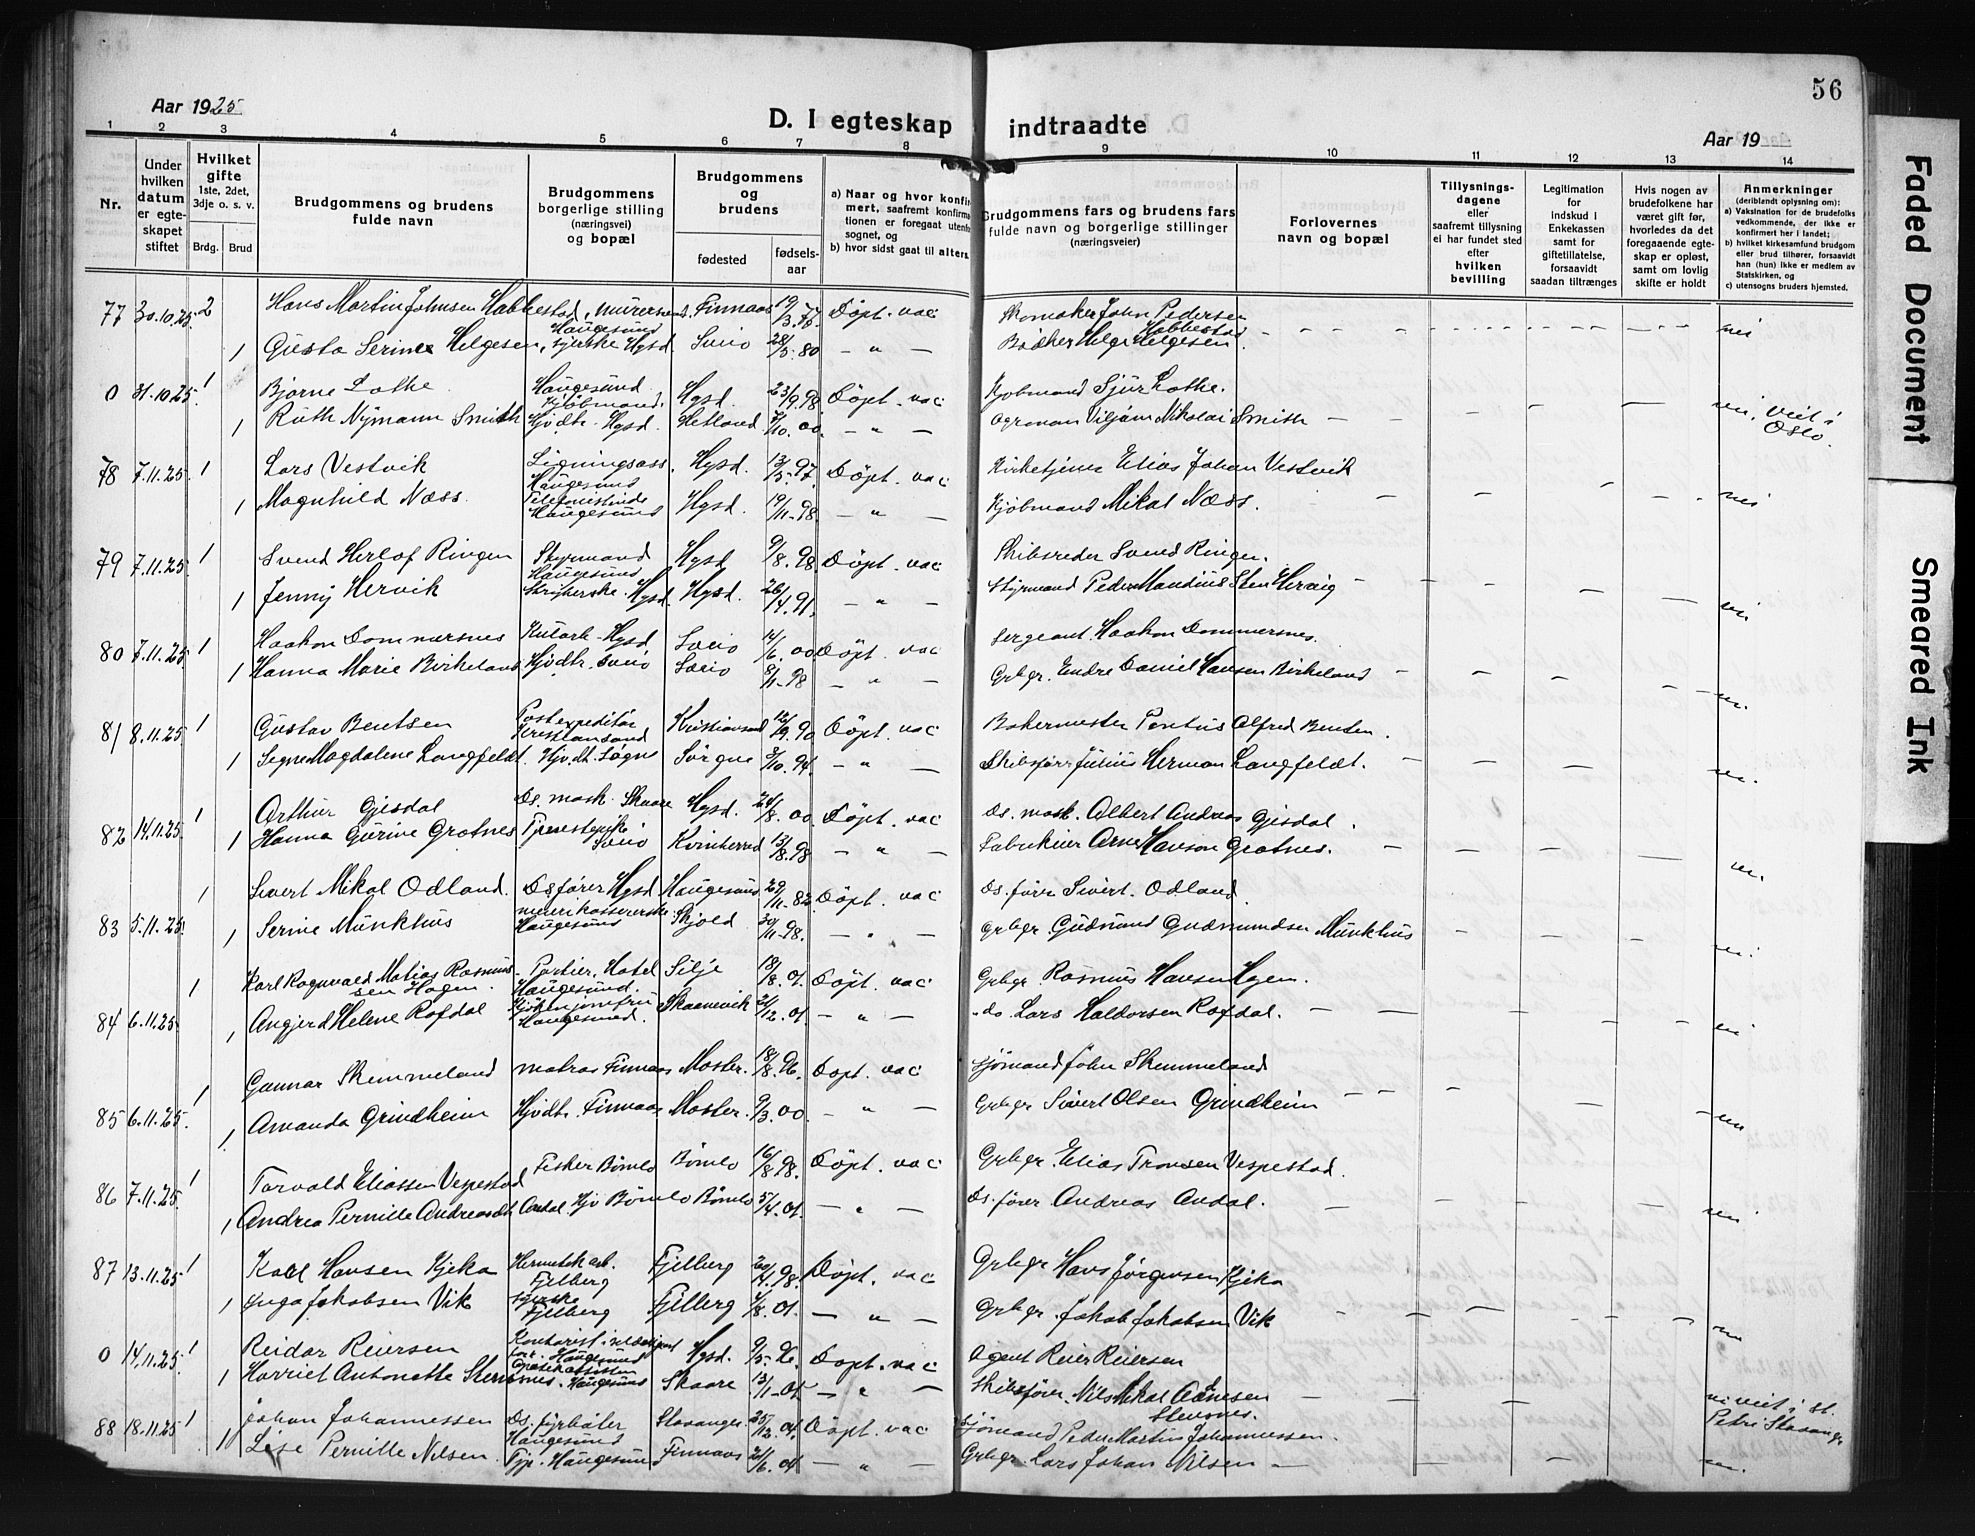 56
Aar 1925
D. I egteskap indtraadte
Aar 19
1 2 3 4 5 6 7 8 9 10 11 12 13 14
Nr.
Under hvilken datum er egteskapet stiftet
Hvilket gifte
1ste, 2det, 3dje o. s. v.
Brdg. Brud
Brudgommens og brudens fulde navn
Brudgommens borgerlige stilling (næringsvei) og bopæl
Brudgommens og brudens
fødested
fødselsaar
a) Naar og hvor konfirmert, saafremt konfirmationen er foregaat utenfor sognet, og
b) hvor sidst gaat til alters.
Brudgommens fars og brudens fars fulde navn og borgerlige stillinger (næringsveier)
Forlovernes navn og bopæl
Tillysningsdagene eller saafremt tillysning ei har fundet sted efter hvilken bevilling
Legitimation for indskud i Enkekassen samt for giftetillatelse, forsaavidt saadan tiltrænges
Hvis nogen av brudefolkene har været gift før, hvorledes da det foregaaende egteskap er opløst, samt om lovlig skifte er holdt
Anmerkninger (deriblandt oplysning om):
a) Vaksination for de brudefolks vedkommende, der ikke er konfirmert her i landet;
b) hvilket kirkesamfund brudgom eller brud tilhører, forsaavidt han (hun) ikke er medlem av Statskirken, og
c) utensogns bruders hjemsted.
77 30.10.25 2 Hans Martin Johnsen Habbestad, murersv. Haugesund Finnaas 19/3.75 Döpt. vac Skomaker John Pedersen Habbestad nei
1 Gusta Serine Helgesen, syerske Hgsd. Sveio 28/5.80 — " — Bödker Helge Helgesen.
0 31.10.25 1 Bjarne Lothe Haugesund Kjöbmand. Hgsd. 23/9.98 Döpt. vac Kjöbmand Sjur Lothe.
1 Ruth Nymann Smith Hjvdtr. Hgsd. Hetland /10.00. — " — Agronom Viljam Nikolai Smith nei, Viet i Oslo.
78 7.11.25 1 Lars Vestvik Ligningsass. Haugesund Hgsd. 13/5.97. Döpt. vac Kirketjener Elias Johan Vestvik
1 Magnhild Næss. Telefonistinde Haugesund Hgsd. 19/11.98. — " — Kjöbmand Mikal Næss. nei
79 7.11.25 1 Svend Herlof Ringen Styrmand Haugesund Hgsd 9/8.98. Döpt. vac Skibsreder Svend Ringen.
1 Jenny Hervik Strykerske. Hgsd. Hgsd. 26/4.91. — " — Styrmand Peder Mandius Sten Hervig nei
80 7.11.25 1 Haakon Dommersnes Kutarb. Hgsd Sveio 14/6.00 Döpt. vac Sergeant. Haakon Dommersnes.
1 Hanna Marie Birkeland Hjvdtr. Sveio Sveio 8/11.98 — " — Grbgr. Endre Daniel Hansen Birkeland nei.
81 8.11.25 1 Gustav Bentsen Postexpeditör Kristiansand Kristiansand 12/9.90 Döpt. vac Bakermester Pontus Alfred Bentsen.
1 Signe Magdalene Langfeldt. Hjvdt. Søgne Sörgne 3/10.94. — " — Skibsförer Julius Herman Langfeldt. nei.
82 14.11.25 1 Arthur Gjesdal Ds. mask. Skaare Hgsd. 24/8.00. Döpt. vac Ds. mask. Albert Andreas Gjesdal.
1 Hanna Gurine Grotnes Tjenestepike Sveio Kvinherred 13/8.98 — " — Fabrikeier Arne Hanson Grotnes. nei.
83 5.11.25 1 Sivert Mikal Odland. Ds fører Hgsd Haugesund 29/11.82. Döpt. vac Ds. förer Sivert. Odland
1 Serine Munkhus Haugesund Skjold 30/11.98. — " — Grbgr Gudmund Gudmundsen Munkhus nei.
84 6.11.25 1 Karl Ragnvald Matias Rasmussen Hagen. Portier. Hotel Haugesund. Silje 18/8.01. Döpt. vac Grbgr. Rasmus Hansen Hgen.
1 Angjerd Helene Rafdal Kjökenjomfru Haugesund. Skaanevik 21/12.01. — " — do. Lars Haldorsen Rafdal. nei
85 6.11.25 1 Gunnar Skimmeland matros Finnaas Moster. 18/8.96. Döpt. vac Sjömand John Skimmeland
1 Amanda Grindheim Hjvdtr. Finnaas Moster. 9/3.00. — " — Grbgr Sivert Olsen Grindheim nei
86 7.11.25 1 Torvald Eliassen Vespestad Fisker Bömlo Bömlo 16/8.98. Döpt. vac Grbgr. Elias Tronsen Vespestad.
1 Andrea Pernille Andreasdt Andal. Hjv Bömlo Bömlo 5/4.01. — " — Ds. förer Andreas Andal. nei
87 13.11.25 1 Karl Hansen Kjeka Hermetik arb. Fjelberg Fjelberg 20/4.98. Döpt. vac Grbgr Hans Jörgensen Kjeka
1 Inga Jakobsen Vik syerske Fjelberg Fjelberg 4/8.01. — " — Grbgr. Jakob Jakobsen Vik nei
0 14.11.25 1 Reidar Reiersen Kontorist Haugesund Hgsd. 9/5.96. Döpt. vac Agent Reier Reiersen
1 Harriet Antonette Stensnes. Haugesund Skaare 13/1.01 — " — Skibsförer. Nils Mikal Aanesen Stensnes. nei viet i st. Petri Stavanger
88 18.11.25 1 Johan Johannessen Ds. fyrböter Haugesund Stavanger. 25/12.04. Döpt. vac Sjömand Peder Martin Johannessen.
1 Lise Pernille Nilsen. Tjp. Haugesund Finnaas 21/6.04 — " — Grbgr. Lars Johan Nilsen — nei.
Faded Document
Smeared Ink